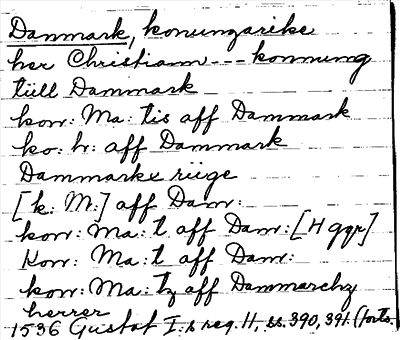 Danmark, konungarike
her Christiann --- konnung
tiill Dammark
kon: Ma: tis aff Dammark
ko: h: aff Dammark
Dammarkx riige
[k: M:] aff Dam:
kon: Ma: t aff Dam: [H gqr]
Kon: Ma: t aff Dam:
kon: Ma: tz aff Dammarchz
herrer
1536 Gustaf I:s reg. 11, ss. 390, 391. (forts.